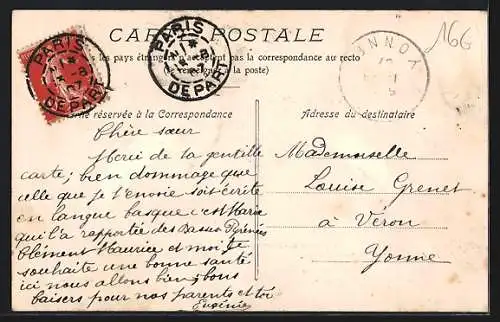 166
CARTE POSTALE
les pays étrangers n'acceptent pas la correspondance au recto
(Se renseigner à la poste)
PARIS
DEPART
PARIS
DEPART
réservée à la Correspondance
Adresse du destinataire
Chère sœur
Merci de ta gentille
carte; bien dommage que
celle que je t'envoie soit écrite
en langue basque c'est Marie
qui l'a rapportée des Basses Pyrénées
Clément Maurice et moi te
souhaite une bonne santé
ici nous allons bien; bons
baisers pour nos parents et toi
Eugénie
Mademoiselle
Louise Grenet
à Véron
Yonne